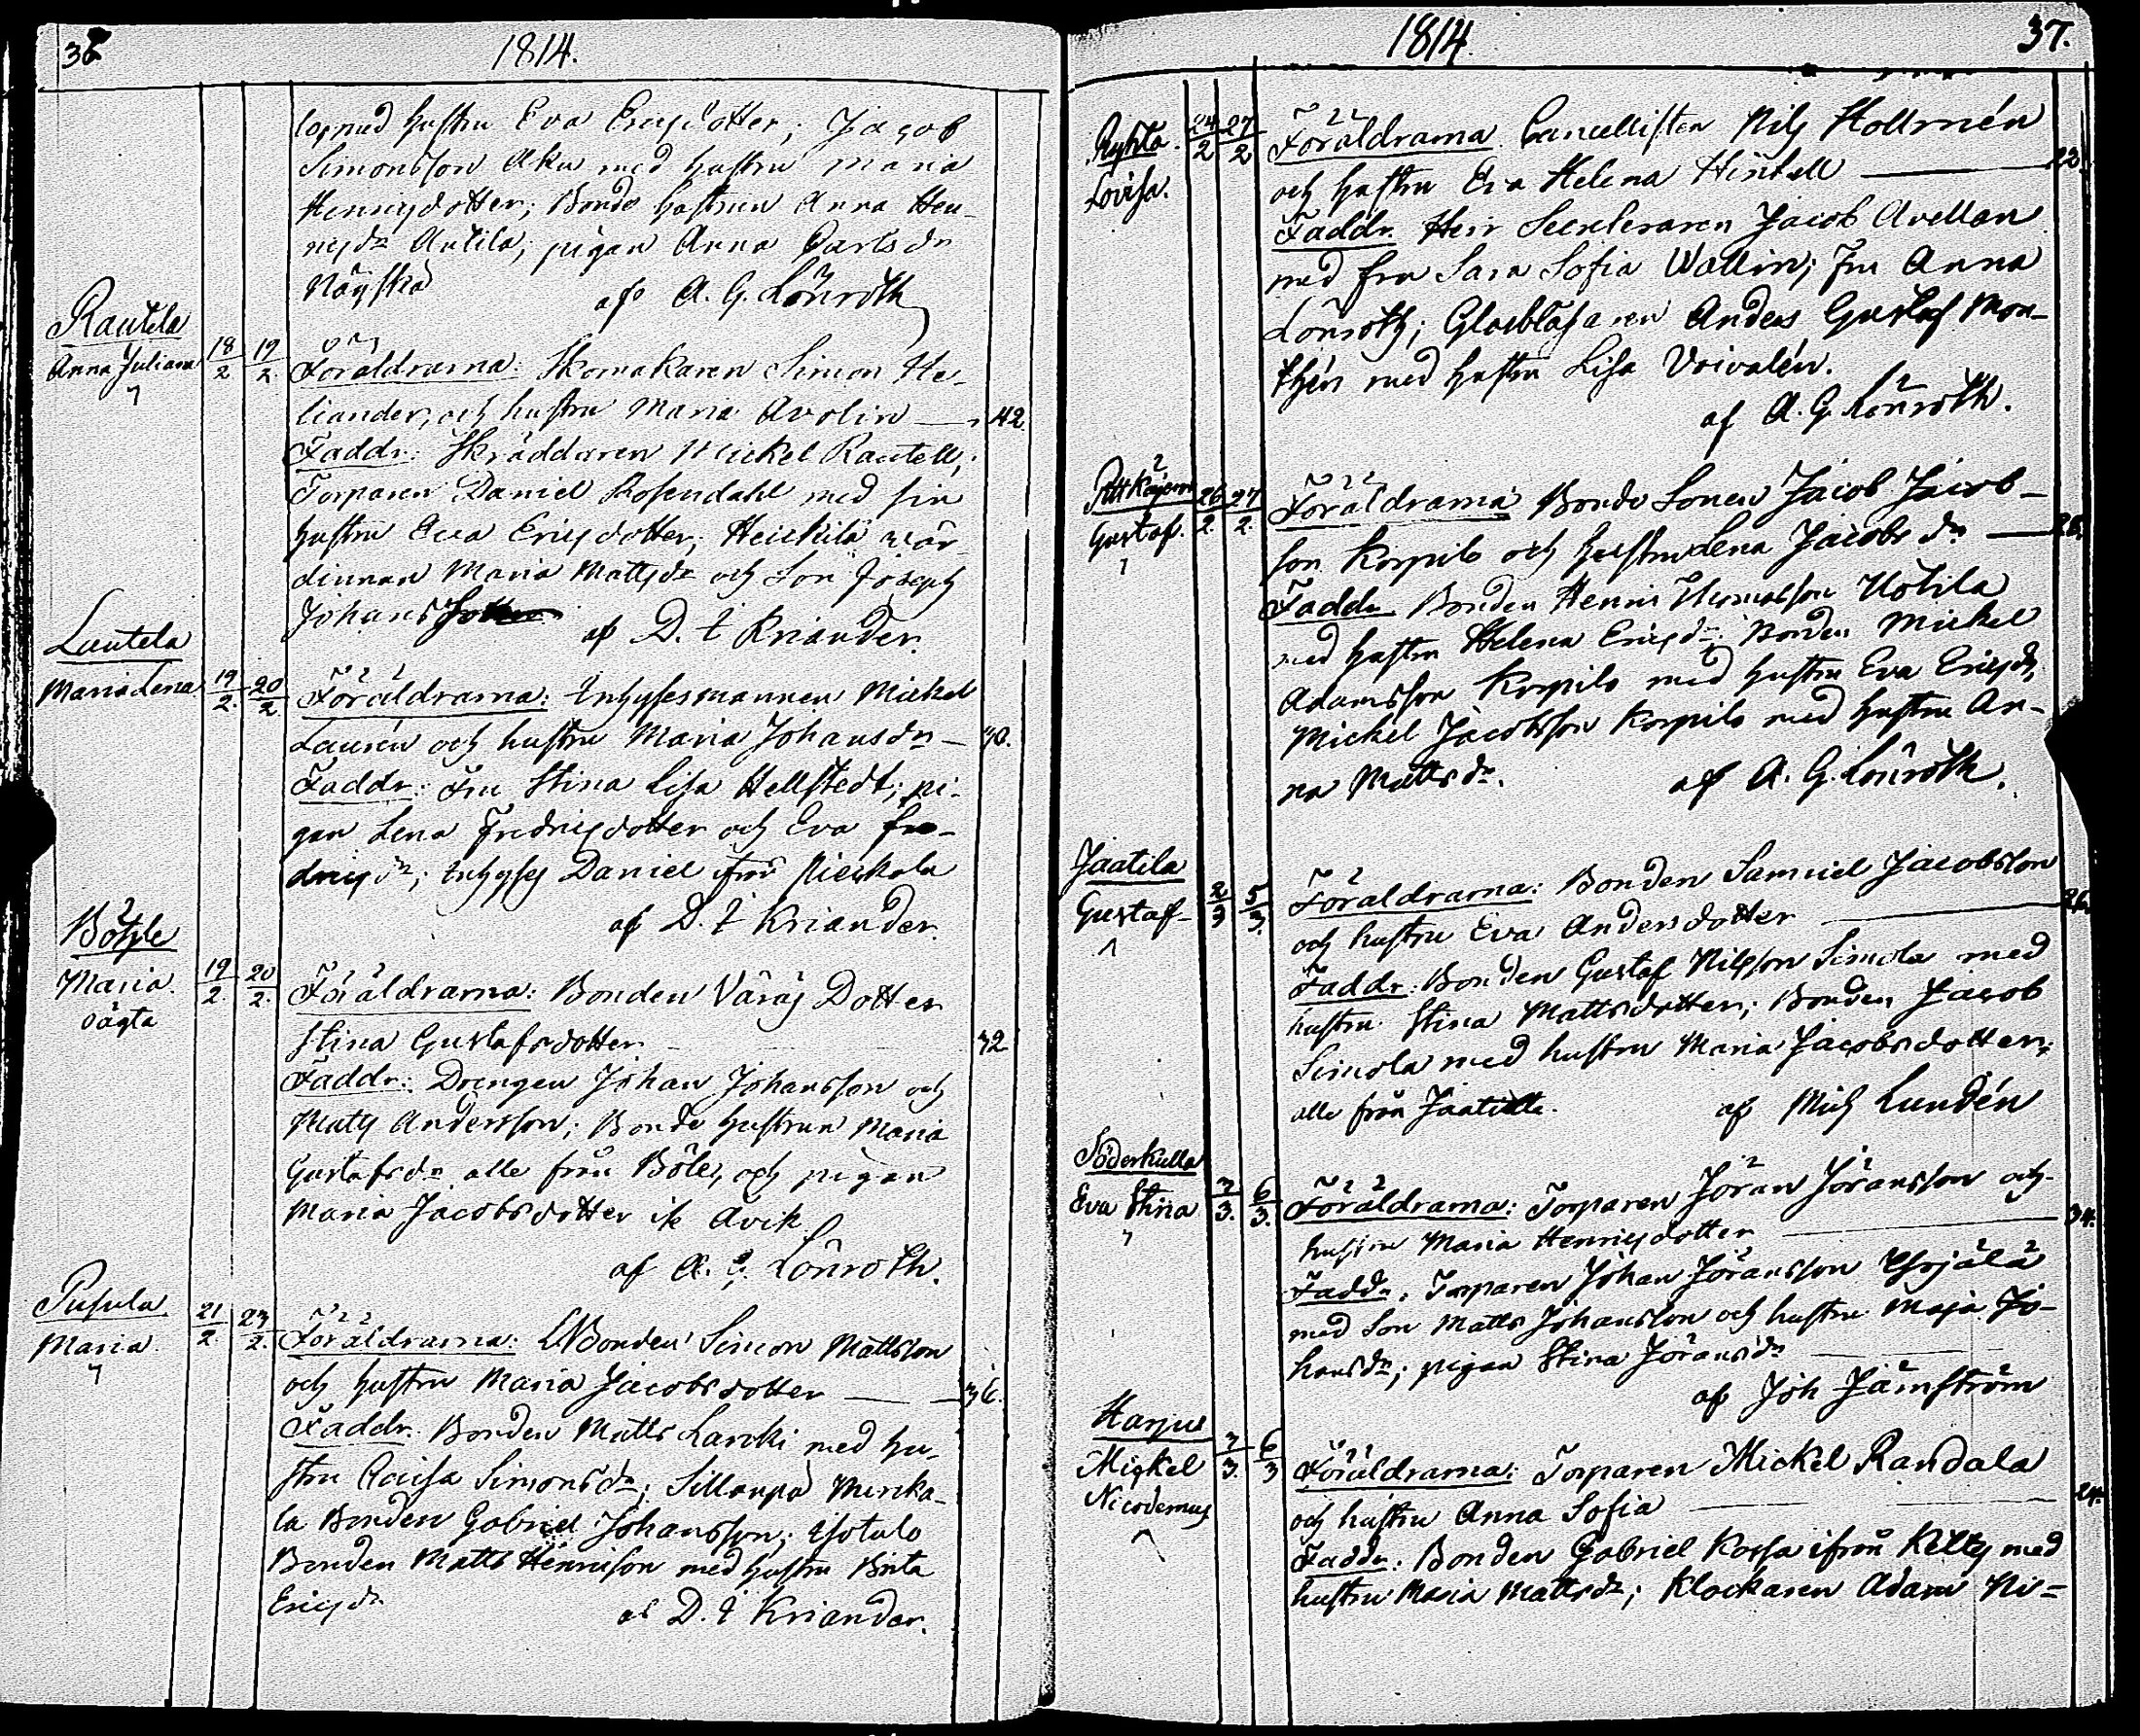 36
1814.
med hustru Eva Ericsdotter; Jacob
Simonsson Aku med hustru Maria
Henricsdotter; Bonde hustrun Anna Hen-
ricsdr Antila; pigan Anna Carlsdr
af A. G. Lönroth
Rautela
Anna Juliana
18/2 19/2
Föräldrarna: Skomakaren Simon He-
liander, och hustru Maria Avolin — 42.
Faddr: Skräddaren Mickel Rautell;
Torparen Daniel Rosendahl med sin
hustru Eva Ericsdotter; Heickilä wär-
dinnan Maria Mattsdr och Son Joseph
Johans
af D. t Kriander.
Lautela
Maria Lena
19/2. 20/2
Föräldrarna: Inhysesmannen Mickel
Laurén och hustru Maria Johansdr — 40.
Faddr: Fru Stina Lisa Hellstedt; pi-
gan Lena Fredricsdotter och Eva Fre-
dricsdr; Inhyses Daniel ifrå Pieskola
af D. t Kriander.
Böhle
Maria.
oägta
19/2. 20/2.
Föräldrarna: Bonden Väräj Dotter
Stina Gustafsdotter 32
Faddr: Drengen Johan Johansson och
Matts Andersson; Bonde hustrun Maria
Gustafsdr alle från Böle, och pigan
Maria Jacobsdotter ifr Avik
af A. G. Lönroth.
Pusula
Maria.
21/2. 23/2.
Föräldrarna: LNBonden Simon Mattsson
och hustru Maria Jacobsdotter — 36.
Faddr. Bonden Matts Larcki med hu-
stru Caisa Simonsdr; Sillanpä
la Bonden Gabriel Johansson; Isotalo
Bonden Matts Henricson med hustru Brita
Ericsdr
af D. t Kriander.
1814
37.
Lovisa.
24/2 27/2
Föräldrarna. Cancellisten Nils Hollmén
och hustru Eva Helena Hintzell — 22.
Faddr. Herr Secreteraren Jacob Avellan
med fru Sara Sofia Wallin; Fru Anna
Lönroth; Glasblåsaren Anders Gustaf Mon-
thén med hustru Lisa Voivalén.
af A. G. Lönroth.
Gustaf.
26/2. 27/2.
Föräldrarna Bonde Sonen Jacob Jacob-
son Korpilo och hustru Lena Jacobsdr — 26.
Faddr Bonden Henric Thomasson Uotila
med hustru Helena Ericsdr; Bonden Mickel
Adamsson Korpilo med hustru Eva Ericsdr,
Mickel Jacobsson Korpilo med hustru An-
na Mattsdr.
af A. G. Lönroth.
Jaatila
Gustaf
2/3 5/3.
Föräldrarna: Bonden Samuel Jacobsson
och hustru Eva Andersdotter — 26.
Faddr: Bonden Gustaf Nilsson Simola med
hustru Stina Mattsdotter; Bonden Jacob
Simola med hustru Maria Jacobsdotter;
alle från Jaatila.
af Mich Lundén
Söderkulla
Eva Stina
3/3. 6/3.
Föräldrarna: Torparen Jöran Jöransson och
hustru Maria Henricsdotter — 34.
Faddr. Torparen Johan Jöransson Yrjälä
med Son Matts Johansson och hustru Maja Jo-
hansdr; pigan Stina Jöransdr
af Joh Jämström
Harjus
Mickel
Nicodemus
3/3. 6/3
Föräldrarna: Torparen Mickel Randala
och hustru Anna Sofia — 24.
Faddr: Bonden Gabriel Kossa ifrån Kelty med
hustru Maria Mattsdr; Klockaren Adam Ni=